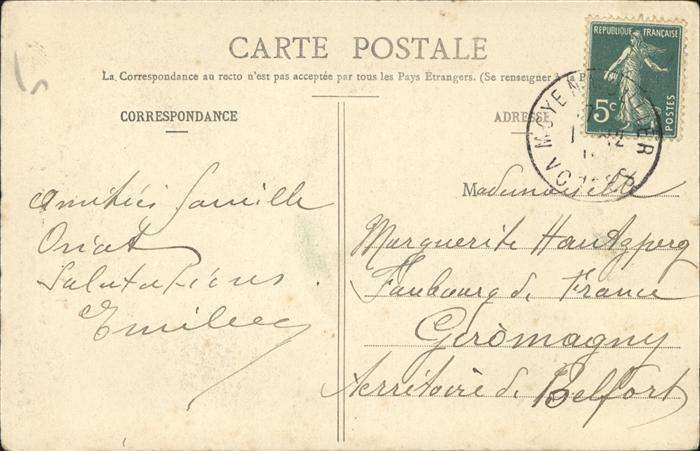 CARTE POSTALE
La Correspondance au recto n'est pas acceptée par tous les Pays Étrangers. (Se renseigner à la P
CORRESPONDANCE
Amitiés famille
Oriat
Salutations.
Emilie
ADRESSE
REPUBLIQUE FRANÇAISE
5c
POSTES
MOYEN
VOSGES
Mademoiselle
Marguerite Hantzperg
Faubourg de France
Geromagny
Territoire de Belfort